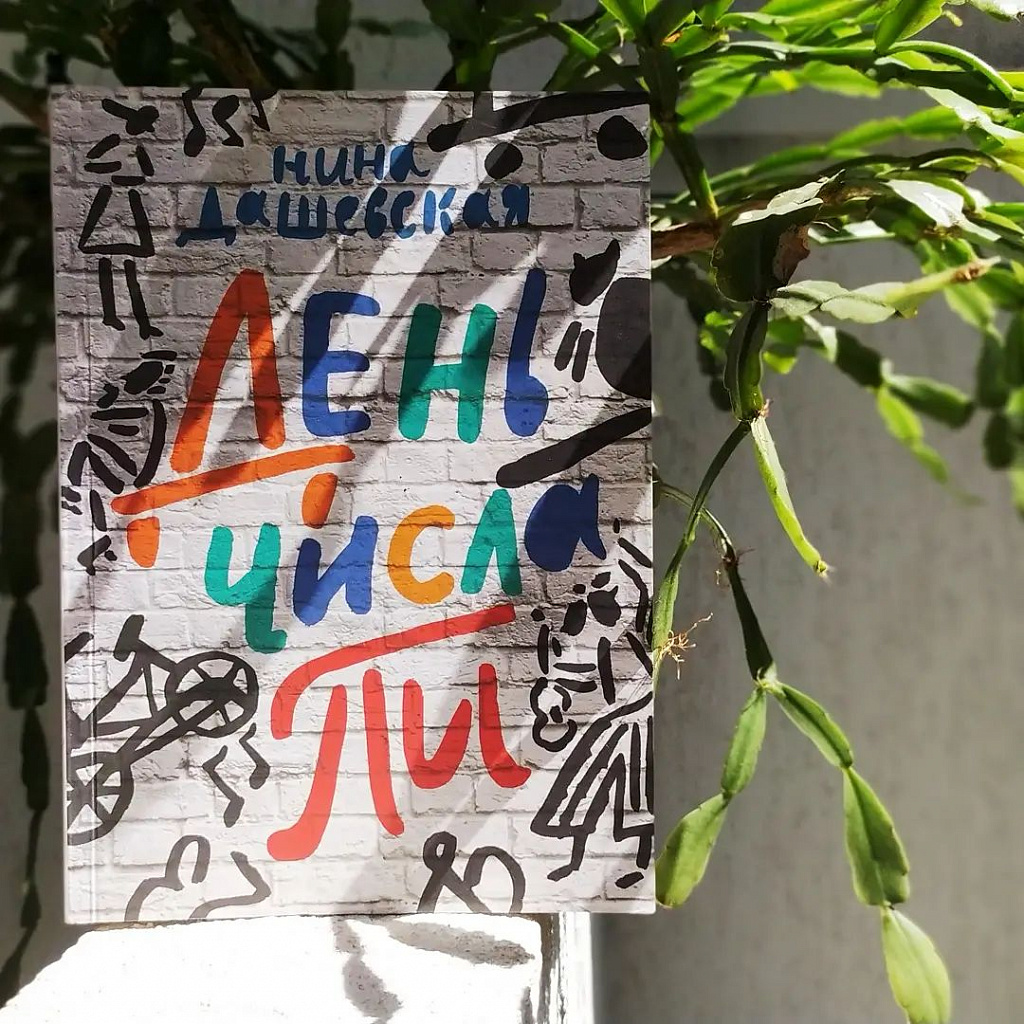 нина
Дашевская
ДЕНЬ
числа
Пи